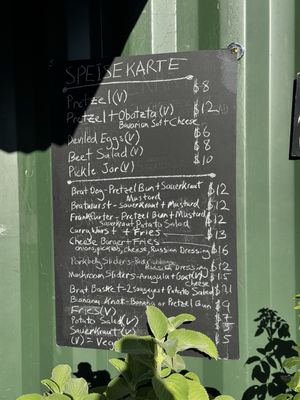 SPEISEKARTE
Pretzel (V) $8
Pretzel + Obatzta (V) $12
Bavarian Soft Cheese
Deviled Eggs (V) $6
Beet Salad (V) $8
Pickle Jar (V) $10
Brat Dog - Pretzel Bun + Sauerkraut $12
Mustard
Bratwurst - Sauerkraut + Mustard $12
Frankfurter - Pretzel Bun + Mustard $12
Sauerkraut Potato Salad
Currywurst + Fries $13
Cheese Burger + Fries $16
onions, pickles, cheese, Russian Dressing
Porkbelly Sliders $12
Russian Dressing
Mushroom Sliders - Arugula + Goat (V) $15
cheese
Brat Basket - 2 sausages + Potato Salad $21
Banana Knot - Banana or Pretzel Bun $9
Fries (V) $7
Potato Salad (V)
Sauerkraut (V) 5
(V) =